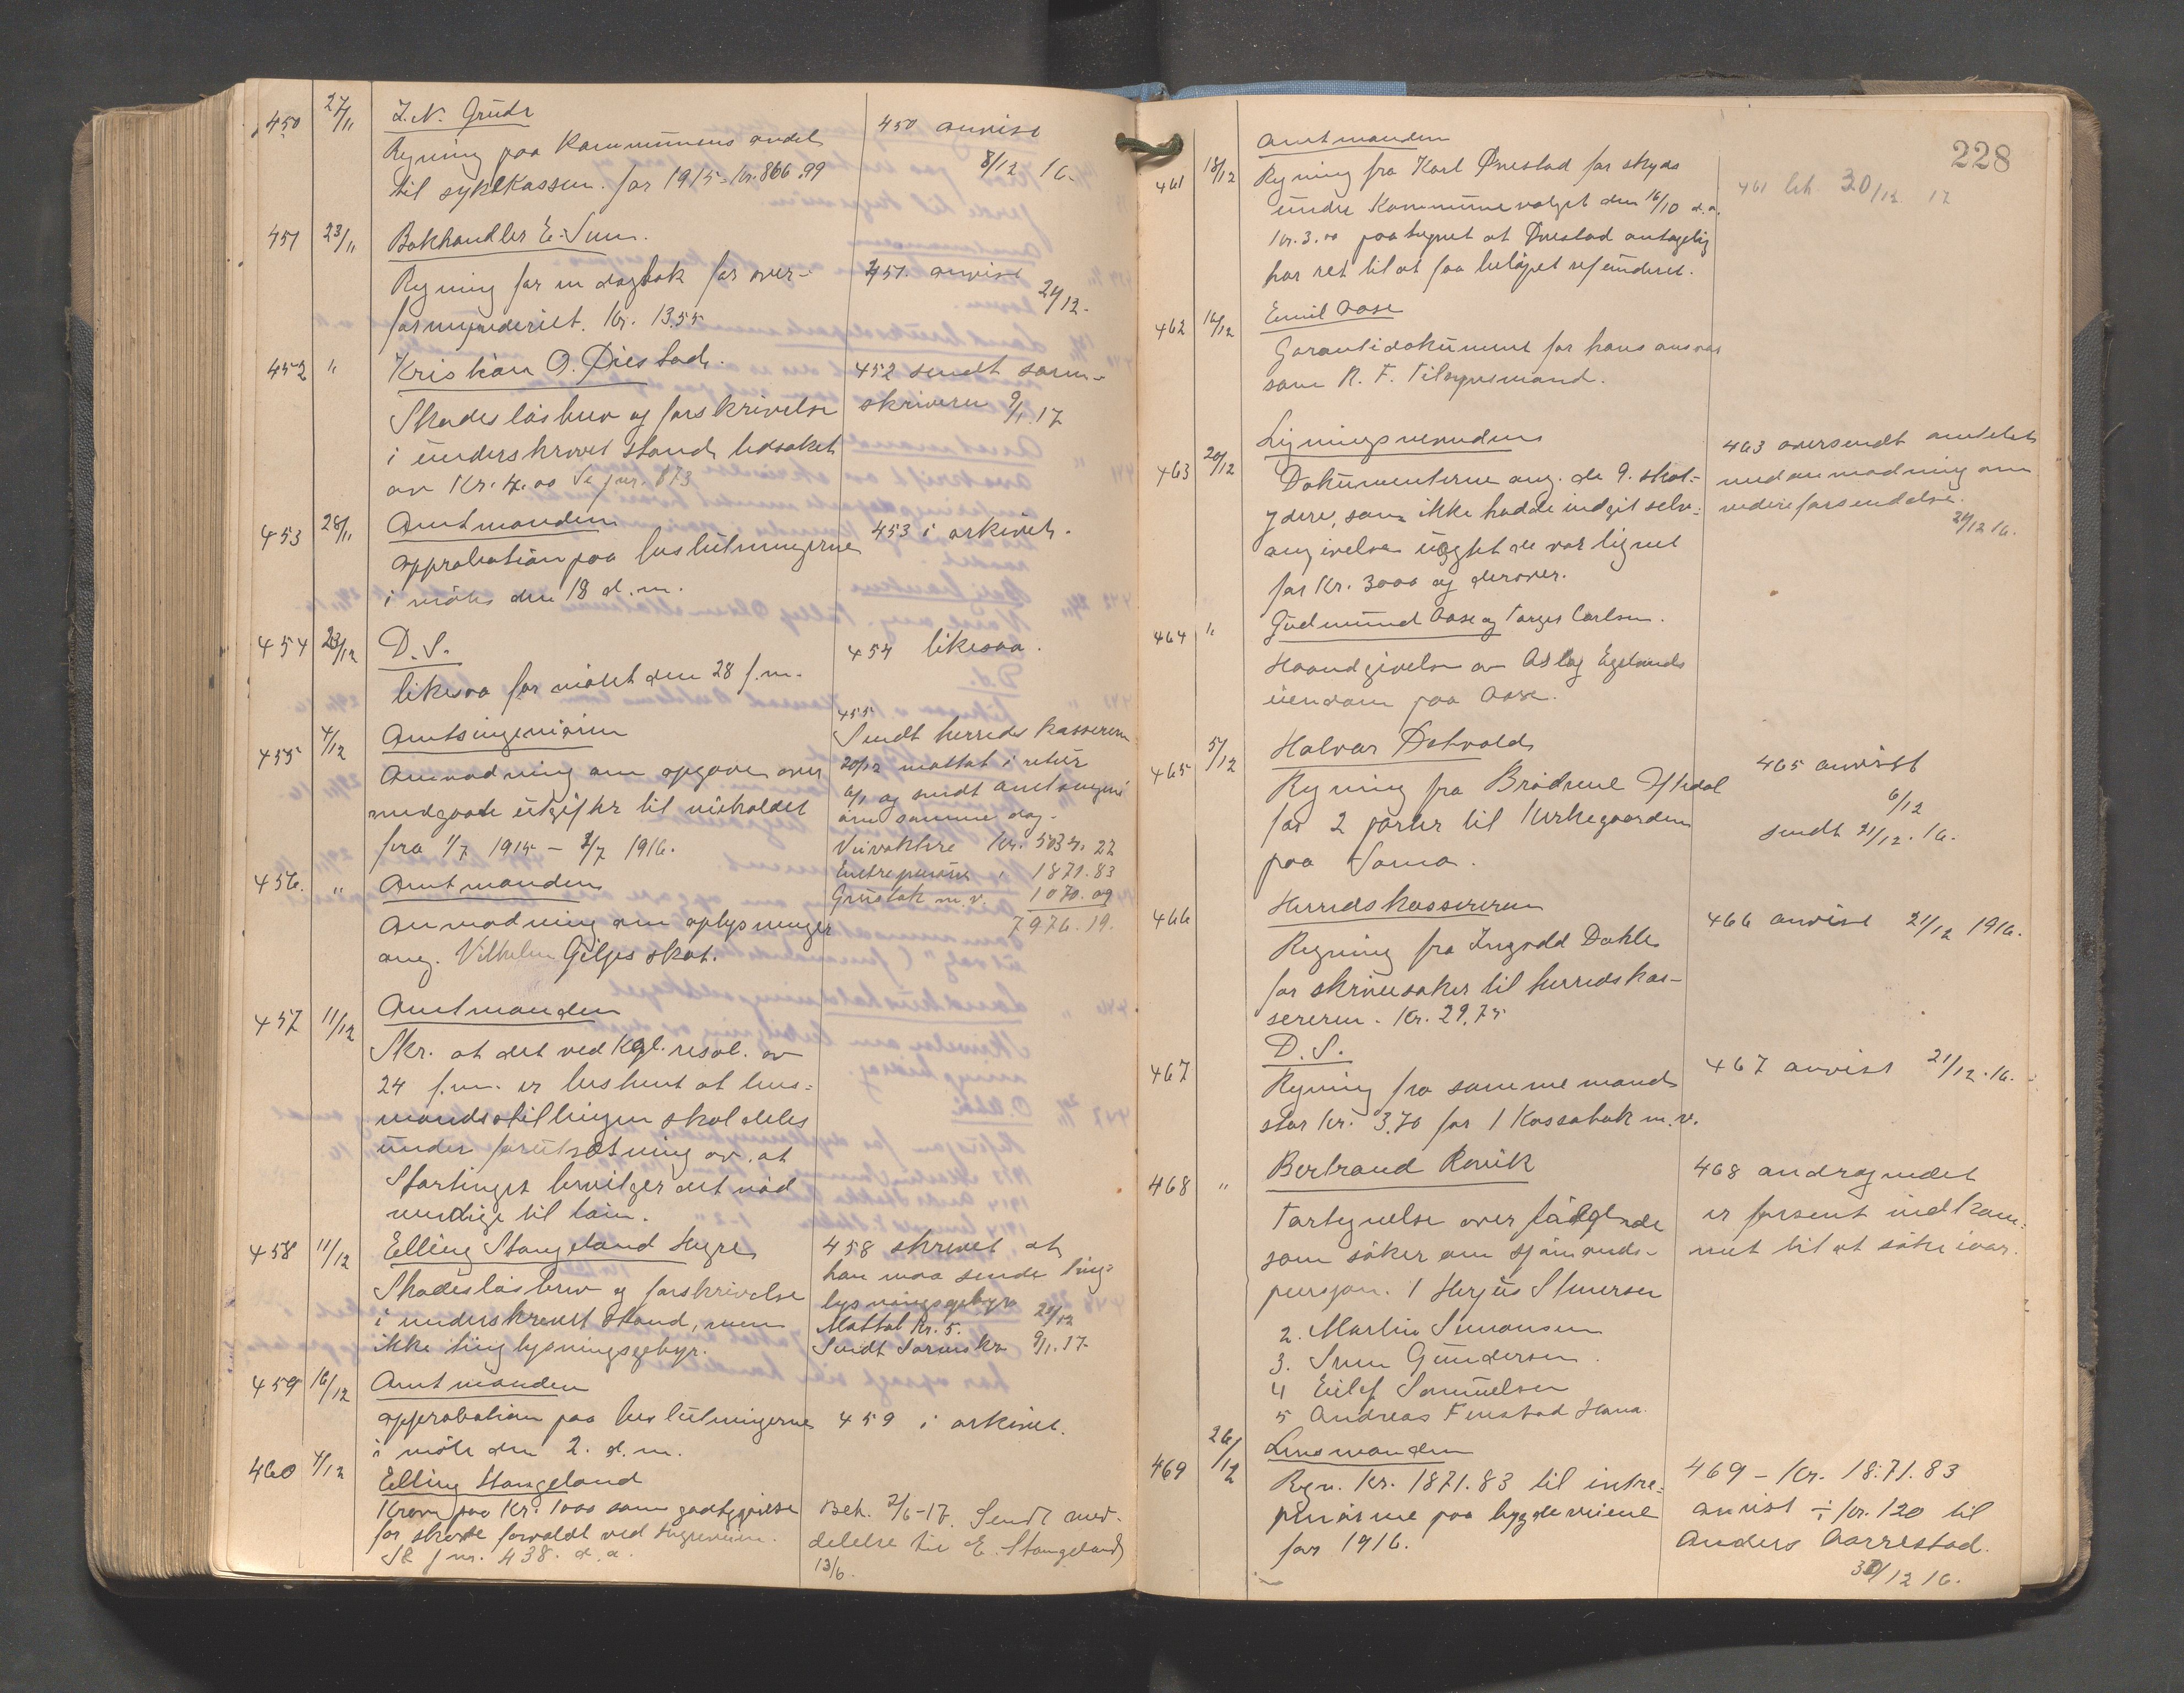 450 27/11 I. N. Grude
Regning paa Kommunens andel
til sykekassen for 1915 = kr. 866.99
450 anvist
8/12 16.
451 23/11 Bokhandler E. Sunn.
Regning for en dagbok for over-
formynderiet. Kr. 13.55
451. anvist
21/12.
452 " Kristian O. Øvestad.
Skadeslösbrev og forskrivelse
i underskrevet stand ledsaket
av Kr. 4.00 Se jnr. 873
452 sendt soren-
skriveren 9/1.17
453 28/11 Amtmanden
Approbation paa beslutningerne
i möte den 18 d.m.
453 i arkivet.
454 23/12 D. S.
likesaa for mötet den 28 f.m.
454 likesaa.
455 4/12 Amtsingeniören
Anmodning om opgave over
medgaaede utgifter til veiholdet
fra 1/7 1915 - 1/7 1916.
455
Sendt herredskassereren
20/12 mottat i retur
6/1 og sendt amtsingeni
ören samme dag.
Veivoktere Kr. 5034. 27
Entreprenörer " 1871.83
Grustak m.v. 1070.09
7976.19.
456. " Amtmanden
Anmodning om oplysninger
ang. Vilhelm Giljes skat.
457 11/12 Amtmanden
Skr. at det ved Kgl. resol. av
24 f.m. er bestemt at lens-
mandsstillingen skal deles
under forutsætning av at
Stortinget bevilger det nöd
vendige til lön.
458 11/12 Elling Stangeland Hogre
Skadeslösbrev og forskrivelse
i underskrevet stand, men
ikke tinglysningsgebyr.
458 skrevet at
han maa sende ting-
lysningsgebyr 20/12
Mottat kr. 5.
Sendt Sorenskr 9/1.17.
459 16/12 Amtmanden
Approbation paa beslutningerne
i möte den 2. d.m.
459 i arkivet.
460 4/12 Elling Stangeland
Krav paa Kr. 1000 som godtgjörelse
for skade forvoldt ved
Se jnr. 438. d.a.
Beh. 2/6-17. Sendt med-
delelse til E. Stangeland
13/6.
228
461 18/12 Amtmanden
Regning fra Karl Øvestad for skyds
under Kommunevalget den 16/10 d.a.
kr. 3.00 paategnet at Øvestad antagelig
har ret til at faa belöpet refunderet.
461 beh. 30/12 17
462 16/12 Emil Aase
Garantidokument for hans ansvar
som R. F. Tilsynsmand.
463 20/12 Ligningsnevnden
Dokumenterne ang. de 9. skat-
ydere, som ikke hadde indgit selv-
angivelse uagtet de var lignet
for Kr. 3000 og derover.
463 oversendt amtet
med anmodning om
videre forsendelse.
21/12 16.
464 " Gudmund Aase og Torger Carlsen.
Haandgivelse av Aslag Egelands
eiendom paa Aase.
465 5/12 Halvar Detvolds
Regning fra Brödrene Iftedal
for 2 porter til Kirkegaarden
paa Soma.
465 anvist
6/12
sendt 21/12. 16.
466 Herredskassereren
Regning fra Ingvald Dahle
for skrivesaker til herredskas-
sereren. Kr. 29.75
466 anvist 21/12 1916.
467 D. S.
Regning fra samme mand
stor kr. 3.70 for 1 Kassabok m.v.
467 anvist 21/12.16.
468 " Bertrand Rovik
Fortegnelse over fölgende
som söker om sjömands-
pensjon. 1 Herjus Simersen
2. Martin Simonsen
3. Sven Gundersen.
4 Eilef Samuelsen
5 Andreas Finstad Hana.
468 andragendet
er forsent indkom-
met til at söke iaar.
469 26/12 Lensmanden
Regn. kr. 1871.83 til entre-
prenörene paa bygdeveiene
for 1916.
469 - kr. 18.71.83
anvist ÷ kr. 120 til
Anders Aarrestad.
30/12 16.